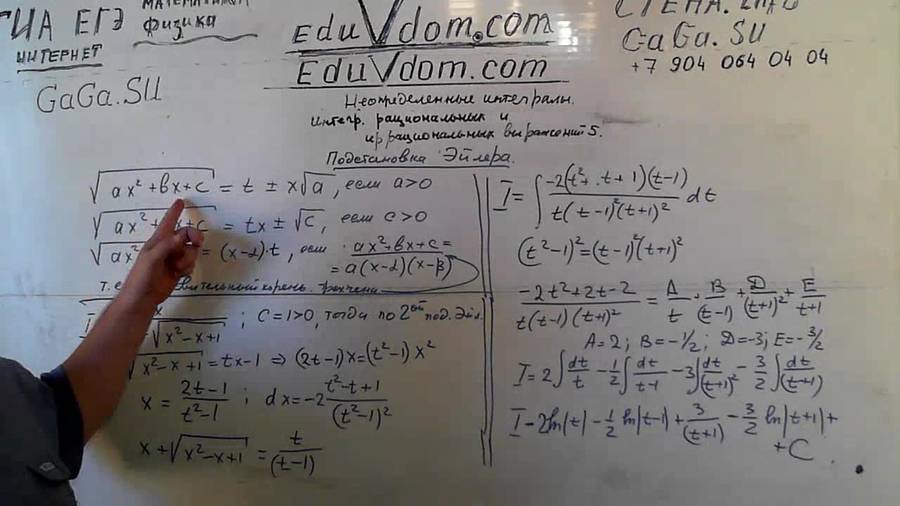 ГИА ЕГЭ
ИНТЕРНЕТ
физика
GaGa.SU
EduVdom.com
EduVdom.com
GaGa.SU
+7 904 064 04 04
Неопределенные интегралы.
Интегр. рациональных и
иррациональных выражений 5.
Подстановка Эйлера.
√(ax²+bx+c) = t ± x√a, если a>0
√(ax²+ x+c) = tx ± √c, если c>0
√(ax² = (x-α)·t, если ax²+bx+c=
=a(x-α)(x-β)
т. е. корень
x √(x²-x+1) ; C=1>0, тогда по 2ой под. Эйл.
√(x²-x+1) = tx-1 ⇒ (2t-1)x=(t²-1)x²
x = (2t-1)/(t²-1) ; dx=-2 (t²-t+1)/(t²-1)²
x+√(x²-x+1) = t/(t-1)
I = ∫ -2(t²+.t+1)(t-1)/(t(t-1)²(t+1)²) dt
(t²-1)²=(t-1)²(t+1)²
(-2t²+2t-2)/(t(t-1)(t+1)²) = A/t + B/(t-1) + D/(t+1)² + E/(t+1)
A=2; B=-1/2; D=-3; E=-3/2
I=2∫dt/t - 1/2∫dt/(t-1) - 3∫dt/(t+1)² - 3/2∫dt/(t+1)
I - 2ln|t| - 1/2 ln|t-1| + 3/(t+1) - 3/2 ln|t+1| +
+C